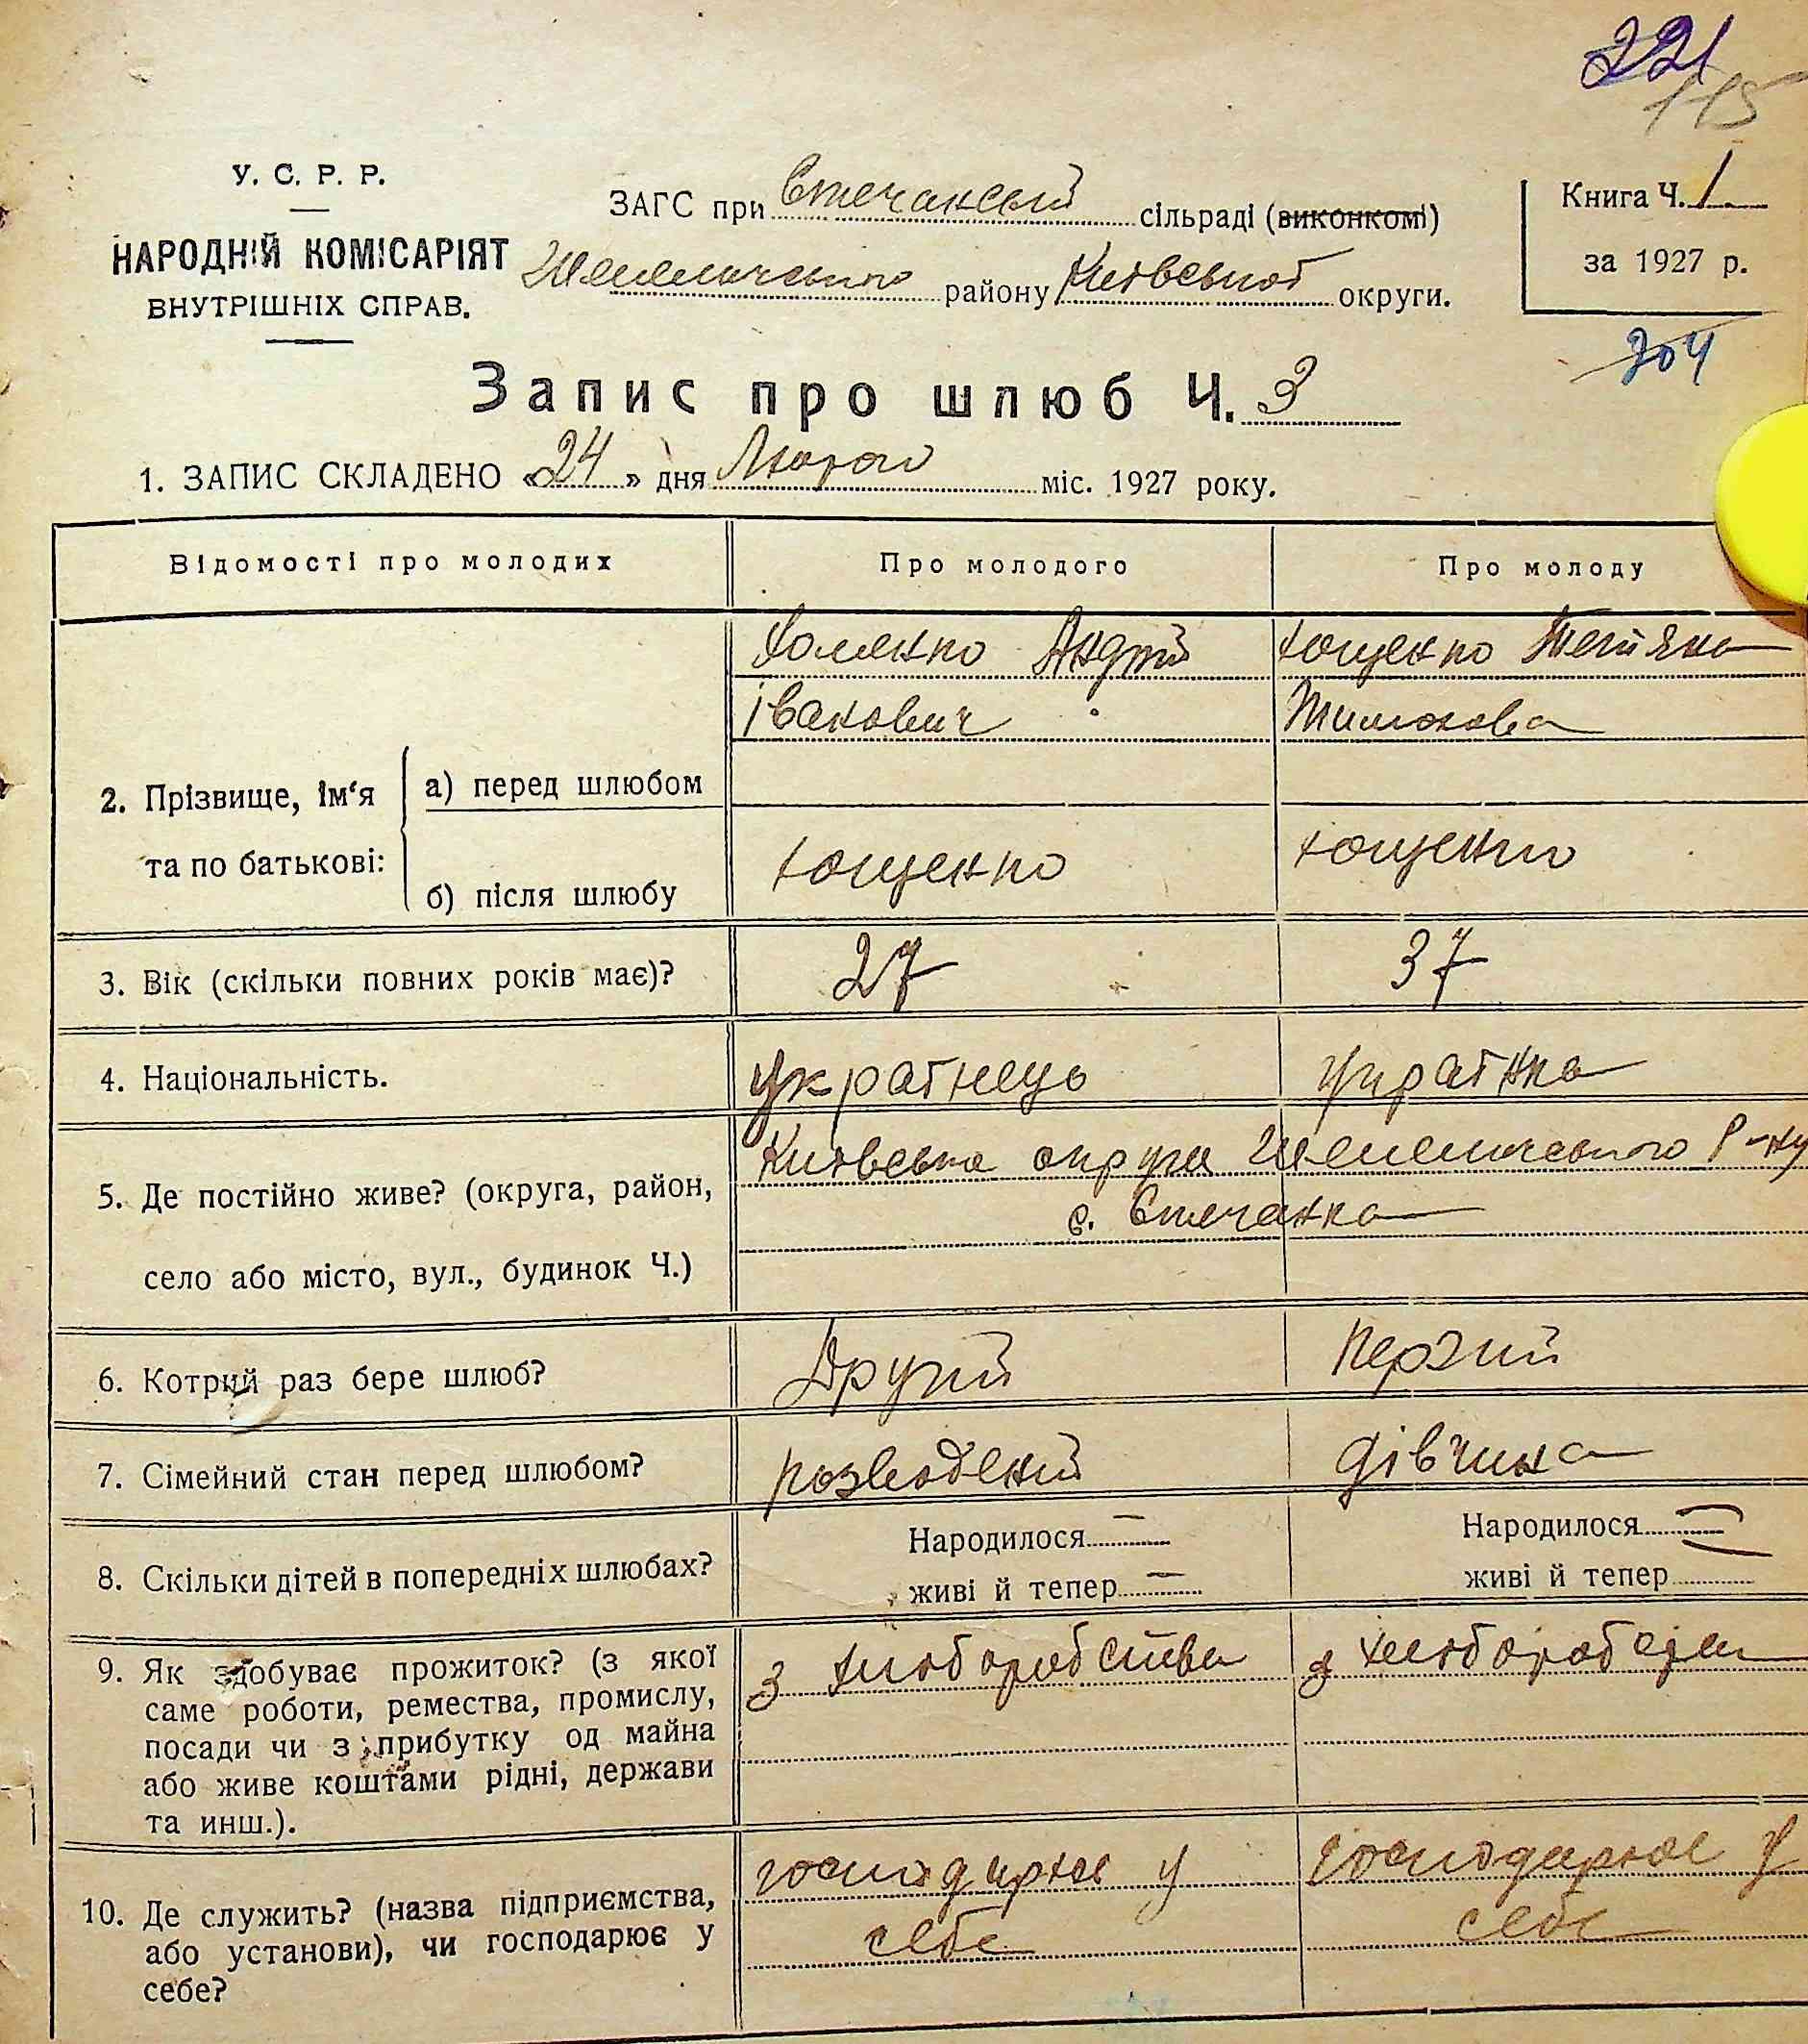 221
115
У. С. Р. Р.
НАРОДНІЙ КОМІСАРІЯТ
ВНУТРІШНІХ СПРАВ.
ЗАГС при Стечанській сільраді (виконкомі)
Шепелицького району Київської округи.
Книга Ч. 1
за 1927 р.
304
Запис про шлюб Ч. 3
1. ЗАПИС СКЛАДЕНО «24» дня Лютого міс. 1927 року.
Відомості про молодих
Про молодого
Про молоду
2. Прізвище, ім‘я та по батькові:
а) перед шлюбом
Андрій
Іванович
Ющенко Тетяна
Тимохова
б) після шлюбу
Ющенко
Ющенко
3. Вік (скільки повних років має)?
27
37
4. Національність.
Українець
Українка
5. Де постійно живе? (округа, район,
село або місто, вул., будинок Ч.)
Київська округа Шепелицького Р-ну
с. Стечанка
6. Котрий раз бере шлюб?
Другий
Перший
7. Сімейний стан перед шлюбом?
розведений
дівчина
8. Скільки дітей в попередніх шлюбах?
Народилося —
живі й тепер —
Народилося —
живі й тепер
9. Як здобуває прожиток? (з якої
саме роботи, ремества, промислу,
посади чи з прибутку од майна
або живе коштами рідні, держави
та инш.).
з хліборобства
з
10. Де служить? (назва підприємства,
або установи), чи господарює у
себе?
господарює у
себе
господарює у
себе